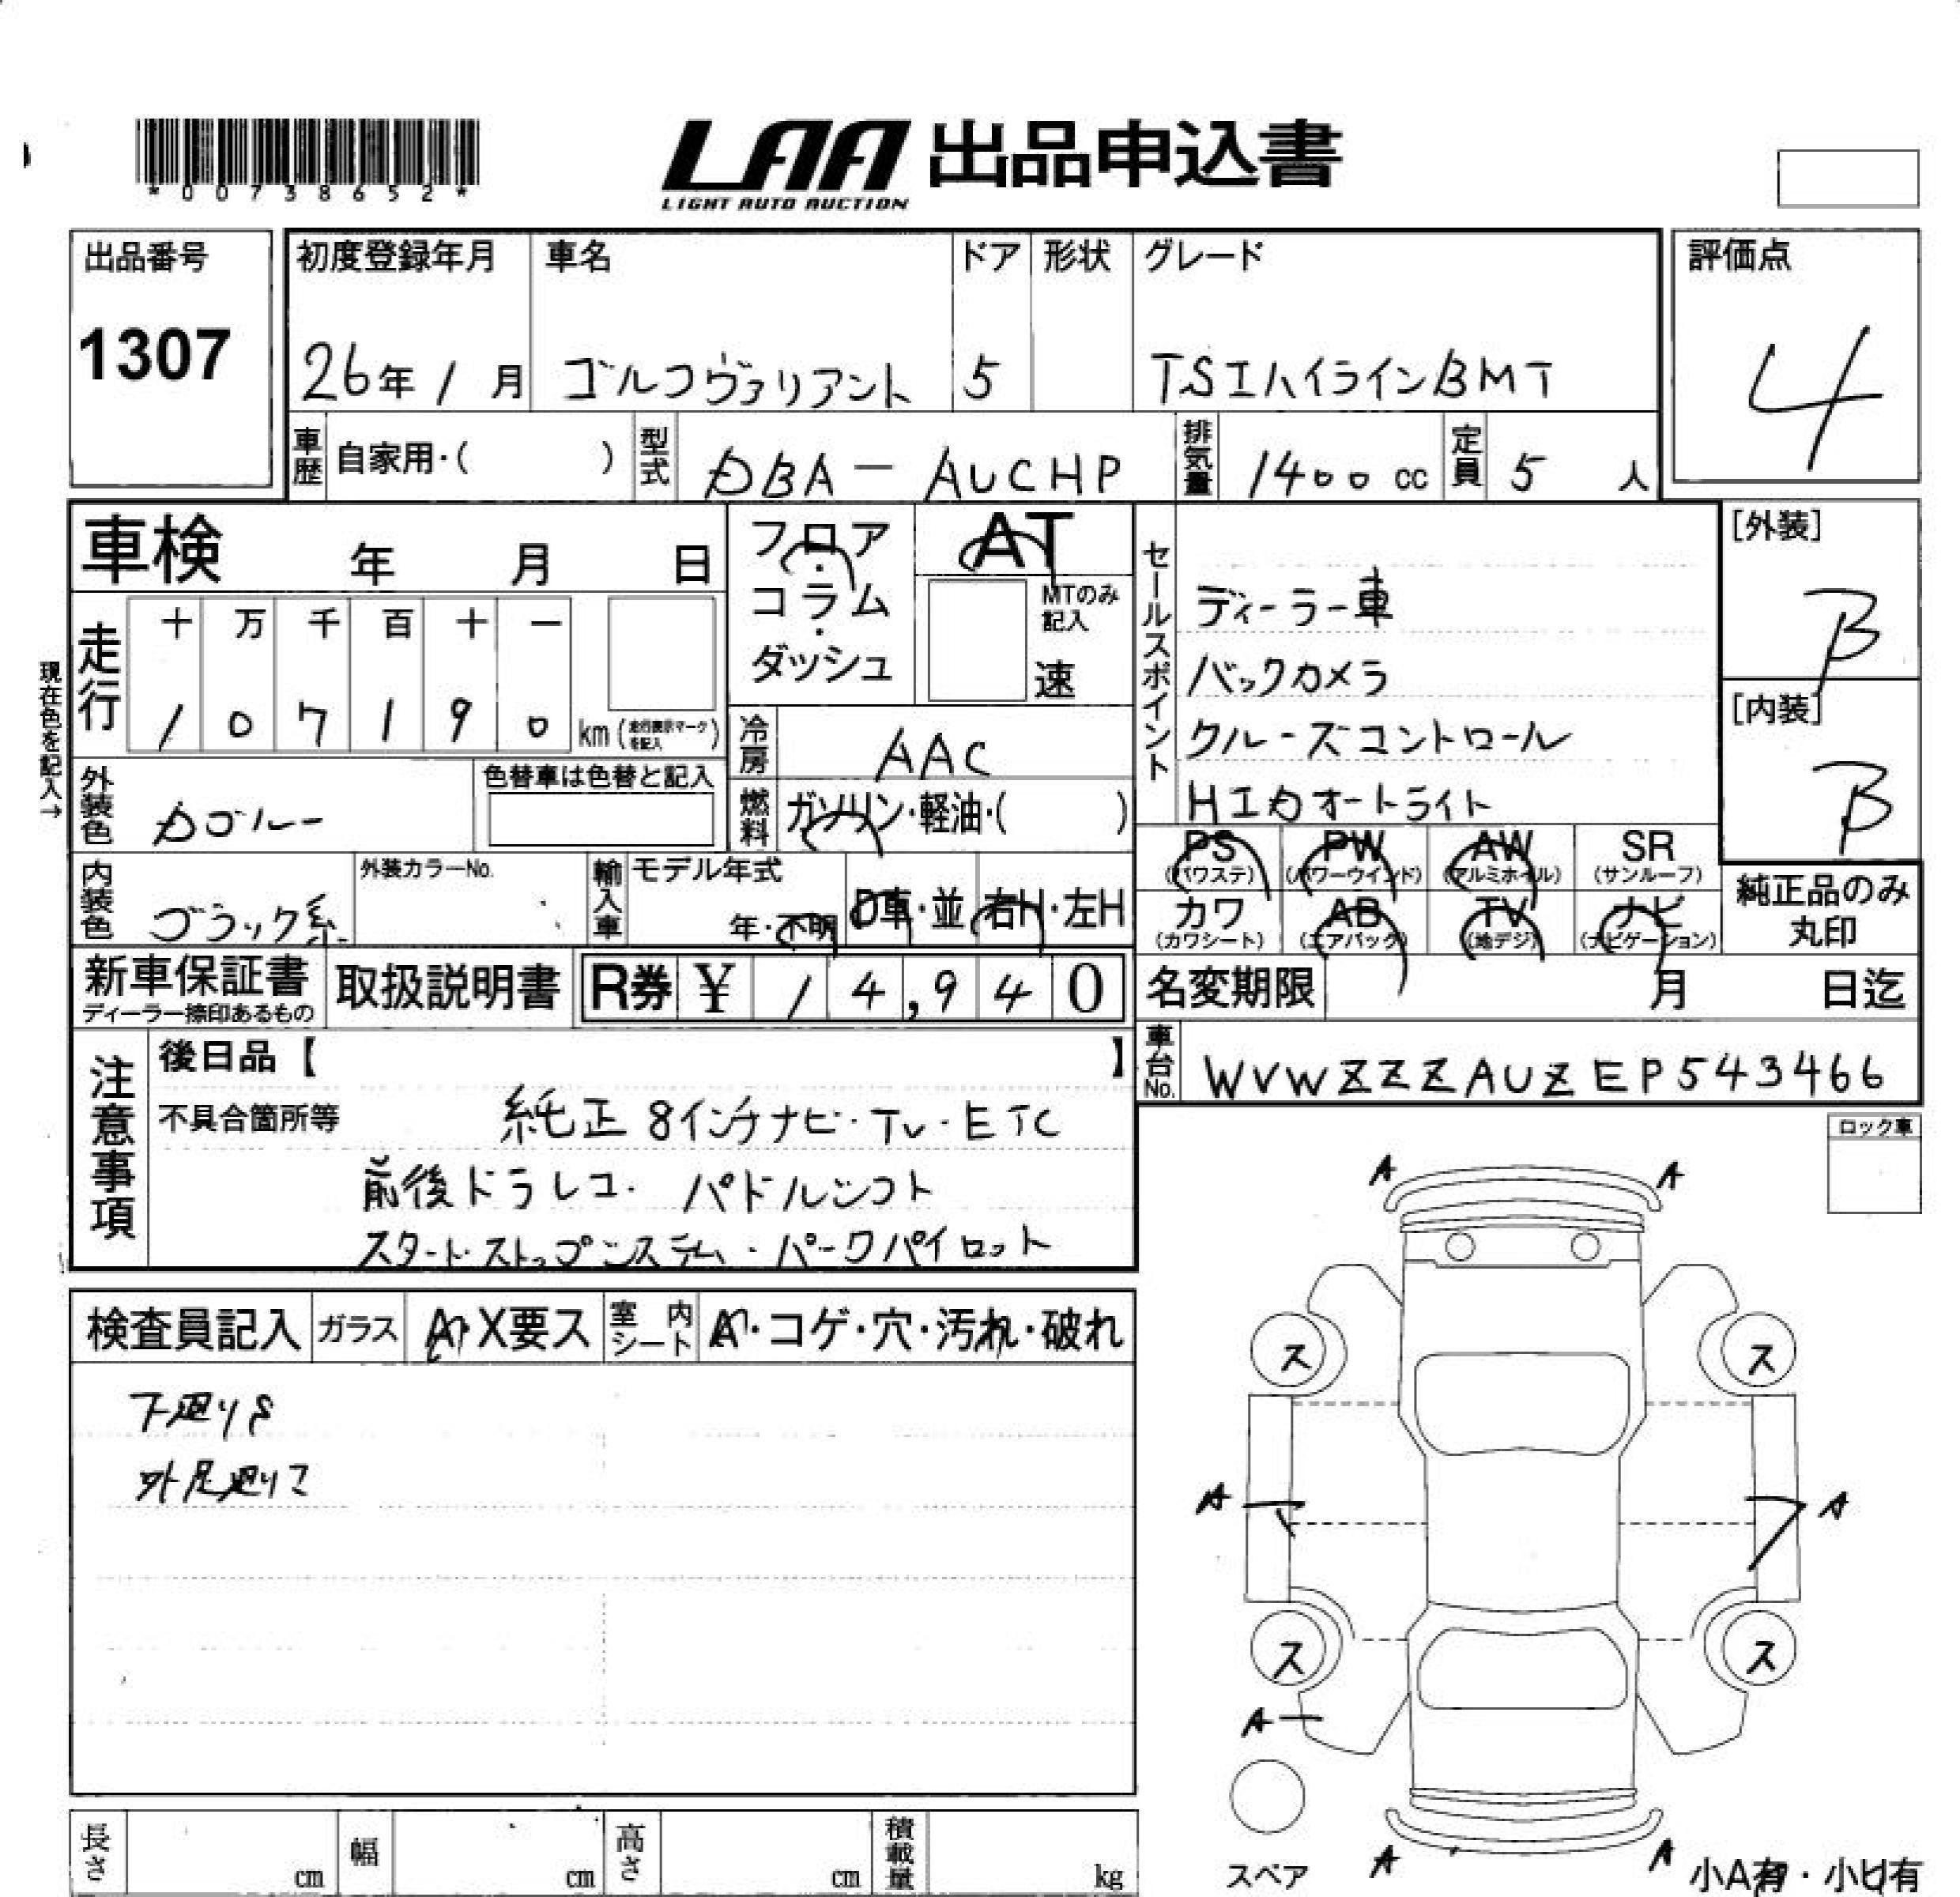 *00738652*
LAA 出品申込書
LIGHT AUTO AUCTION
出品番号
1307
初度登録年月
26年1月
車名
ゴルフヴァリアント
ドア
5
形状
グレード
TSIハイラインBMT
評価点
4
車歴 自家用・( )
型式 DBA-AUCHP
排気量 1400 cc
定員 5 人
車検 年 月 日
フロア・コラム・ダッシュ
AT
MTのみ記入
速
セールスポイント
ディーラー車
バックカメラ
クルーズコントロール
HIDオートライト
[外装]
B
[内装]
B
現在色を記入→
走行
十 万 千 百 十 一
1 0 7 1 9 0 km (走行表示マークを記入)
冷房 AAC
外装色 Dブルー
色替車は色替と記入
燃料 ガソリン・軽油・( )
PS (パワステ)
PW (パワーウインド)
AW (アルミホイル)
SR (サンルーフ)
カワ (カワシート)
AB (エアバック)
TV (地デジ)
ナビ (ナビゲーション)
純正品のみ丸印
内装色 ブラック系
外装カラーNo.
輸入車
モデル年式
年・不明
D車・並
右H・左H
新車保証書
ディーラー捺印あるもの
取扱説明書
R券 ¥ 14,940
名変期限 月 日迄
車台No. WVWZZZAUZEP543466
注意事項
後日品【 】
不具合箇所等
純正8インチナビ・TV・ETC
前後ドラレコ・パドルシフト
スタートストップシステム・パークパイロット
ロック車
A A
検査員記入
ガラス A・X要ス
室内シート A・コゲ・穴・汚れ・破れ
下廻りS
外足廻りサ
ス ス
A A
ス ス
A
スペア
A A
小A有・小U有
長さ cm
幅 cm
高さ cm
積載量 kg